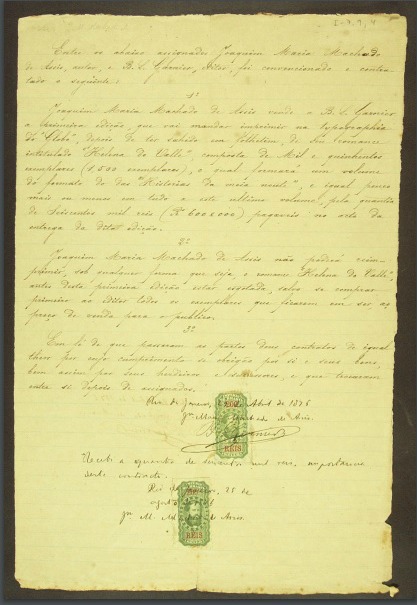 Entre os abaixo assignados Joaquim Maria Machado
de Assis, autor, e B. L. Garnier, editor, foi convencionado e contra-
tado o seguinte:
1º
Joaquim Maria Machado de Assis vende a B. L. Garnier
a primeira edição, que vai mandar imprimir na typographia
do Globo, depois de ter sahido em folhetim, de seu romance
intitulado "Helena do Valle", composta de Mil e quinhentos
exemplares (1,500 exemplares), e qual formará um volume
do formato do das "Historias da meia noute" e igual pouco
mais ou menos em tudo a este ultimo volume, pela quantia
de Seiscentos mil reis (Rs 600$000) pagaveis no acto da
entrega da dita edição.
2º
Joaquim Maria Machado de Assis não poderá reim-
primir, sob qualquer forma que seja, o romance "Helena do Valle",
antes desta primeira edição estar esgotada, salvo se comprar
primeiro ao editor todos os exemplares que ficarem em ser ao
preço de venda para o publico.
3º
Em fé do que passaram as partes dous contratos de igual
theor por cujo cumprimento se obrigão por si e seus bens,
bem assim por seus herdeiros e successores, e que trocaram
entre si depois de assignados.
Rio de Janeiro, de Abril de 1876
Jm Maria Machado de Assis
B. L. Garnier
REIS
Recebi a quantia de seiscentos mil reis, importancia
deste contracto.
Rio de Janeiro, 25 de
agosto
Jm M. Machado de Assis.
REIS